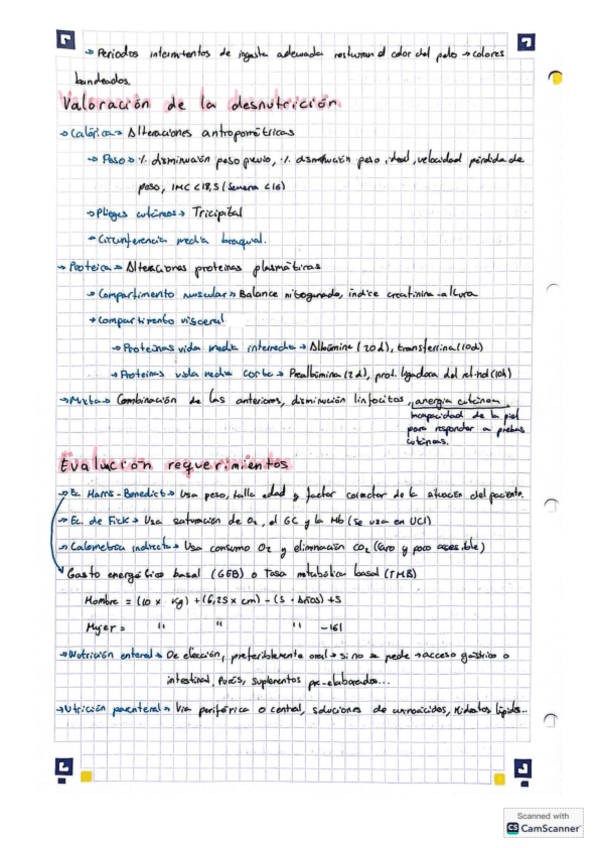 → Periodos intermitentes de ingesta adecuada restauran el color del pelo → colores
bandeados.
Valoración de la desnutrición
→ Calórica → Alteraciones antropométricas
→ Peso → % disminuación peso previo, % disminución peso ideal, velocidad pérdida de
peso, IMC <18,5 (Severa <16)
→ Pliegues cutáneos → Tricipital
→ Circunferencia media braquial.
→ Proteica → Alteraciones proteinas plasmáticas
→ Compartimento muscular → Balance nitrogenado, índice creatinina-altura
→ Compartimento visceral
→ Proteinas vida media intermedia → Albúmina (20d), transferrina (10d)
→ Proteinas vida media corta → Prealbúmina (2d), prot. ligadora del retinol (10h)
→ Mixta → Combinación de las anteriores, disminución linfocitos, anergia cutánea
incapacidad de la piel
para responder a pruebas
cutáneas.
Evalución requerimientos
→ Ec. Harris-Benedict → Usa peso, talla edad y factor corrector de la situación del paciente.
→ Ec. de Fick → Usa saturación de O₂, el GC y la Hb (se usa en UCI)
→ Calometría indirecta → Usa consumo O₂ y eliminación CO₂ (caro y poco accesible)
Gasto energético basal (GEB) o Tasa metabólica basal (TMB)
Hombre = (10 x kg) + (6,25 x cm) - (5 · años) + 5
Mujer = " " " -161
→ Nutrición enteral → De elección, preferiblemente oral → si no se puede → acceso gástrico o
intestinal. Purés, suplementos pre-elaborados...
→ Nutrición parenteral → Vía periférica o central, soluciones de aminoácidos, Hidratos lípidos...
Scanned with
CS CamScanner